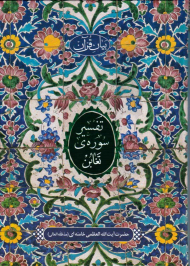 بیان قرآن
تفسیر
سوره‌ی
تغابن
حضرت آیت‌الله العظمی خامنه‌ای (مدظله‌العالی)